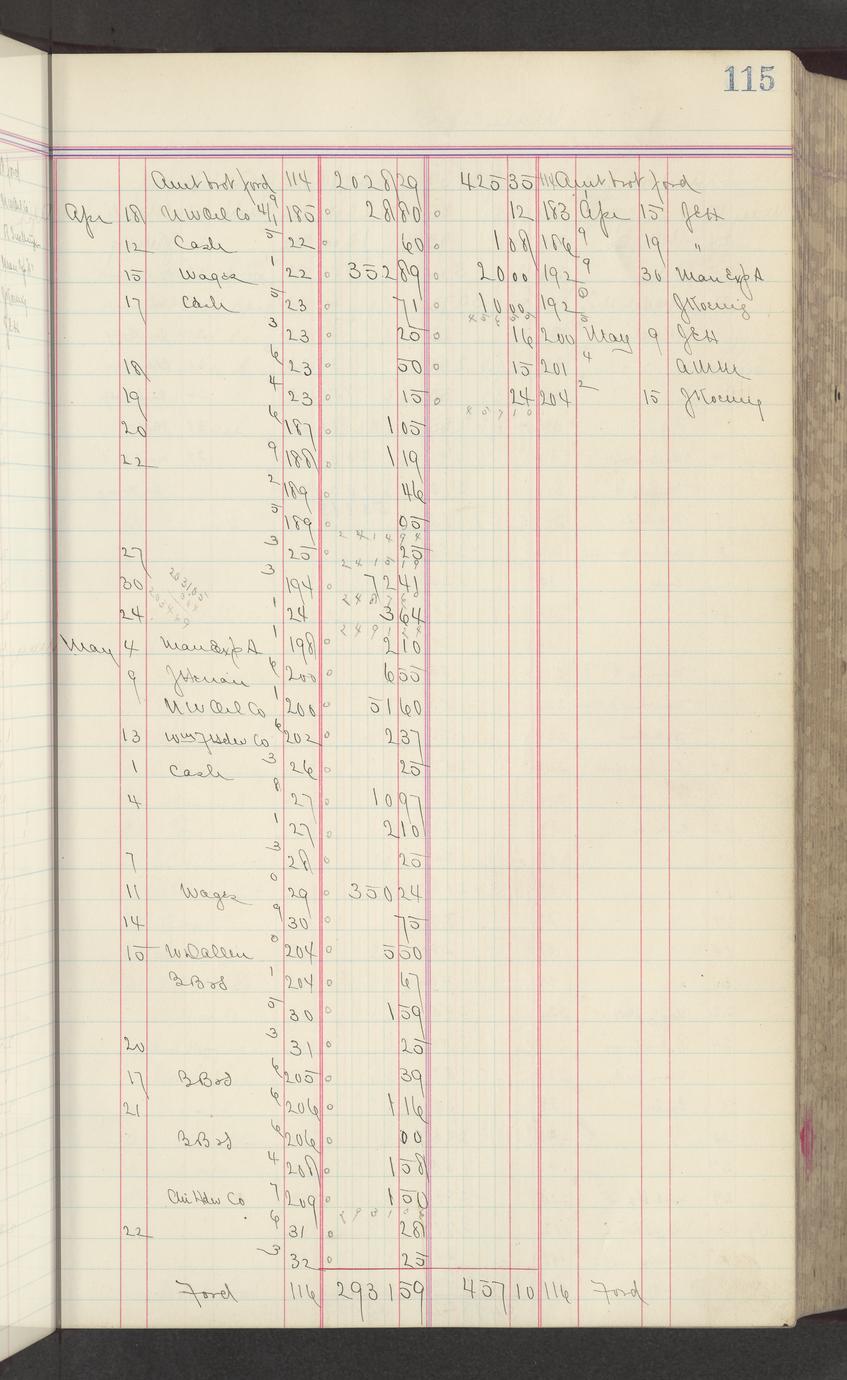 115
Amt brot ford 114 2028 29 425 35 114 Amt brot ford
Apr 18 N W Oil Co 4/1 9 185 28 80 12 183 Apr 15 JEH
12 Cash 5 22 60 1 08 186 9 19 "
15 Wages 1 22 352 89 20 00 192 9 30 Man Exp A
17 Cash 5 23 71 10 00 192 0 J Koenig
3 23 25 16 200 May 5 9 JEH
18 6 23 50 15 201 4
19 4 23 15 24 204 2 15 J Koenig
20 6 187 1 05 457 10
22 9 188 1 19
2 189 46
5 189 05
2414 94
27 3 25 25
2415 19
30 3 194 72 41
24 1 24 3 64
May 4 Man Exp A 1 198 2 10
9 6 200 6 55
N W Oil Co 1 200 51 60
13 Wm F Hdw Co 6 202 2 37
1 Cash 3 26 25
4 8 27 10 97
1 27 2 10
7 3 28 25
11 Wages 0 29 350 24
14 9 30 75
15 W Dallen 0 204 5 50
B Bros 1 204 67
5 30 1 59
20 3 31 25
17 B Bros 6 205 39
21 6 206 1 16
B Bros 6 206 00
4 208 1 58
Chi Hdw Co 7 209 1 50
22 6 31 28
3 32 25
Ford 116 2931 59 457 10 116 Ford